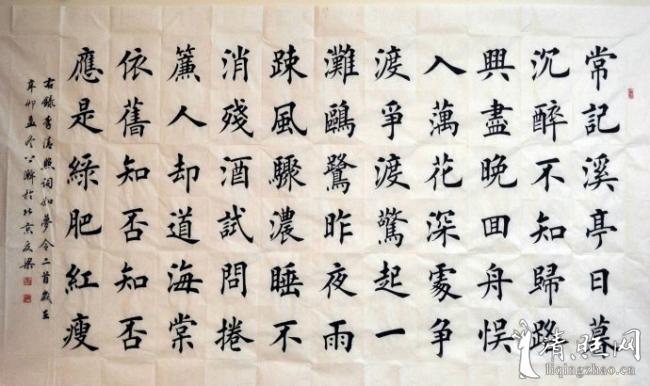 常記溪亭日暮
沉醉不知歸路
興盡晚囬舟悮
入蕅花深處爭
渡爭渡驚起一
灘鷗鷺昨夜雨
踈風驟濃睡不
消殘酒試問捲
簾人却道海棠
依舊知否知否
應是綠肥紅瘦
右錄李清照詞如夢令二首歲在
辛卯孟冬於北京
清照网
liqingzhao.cn